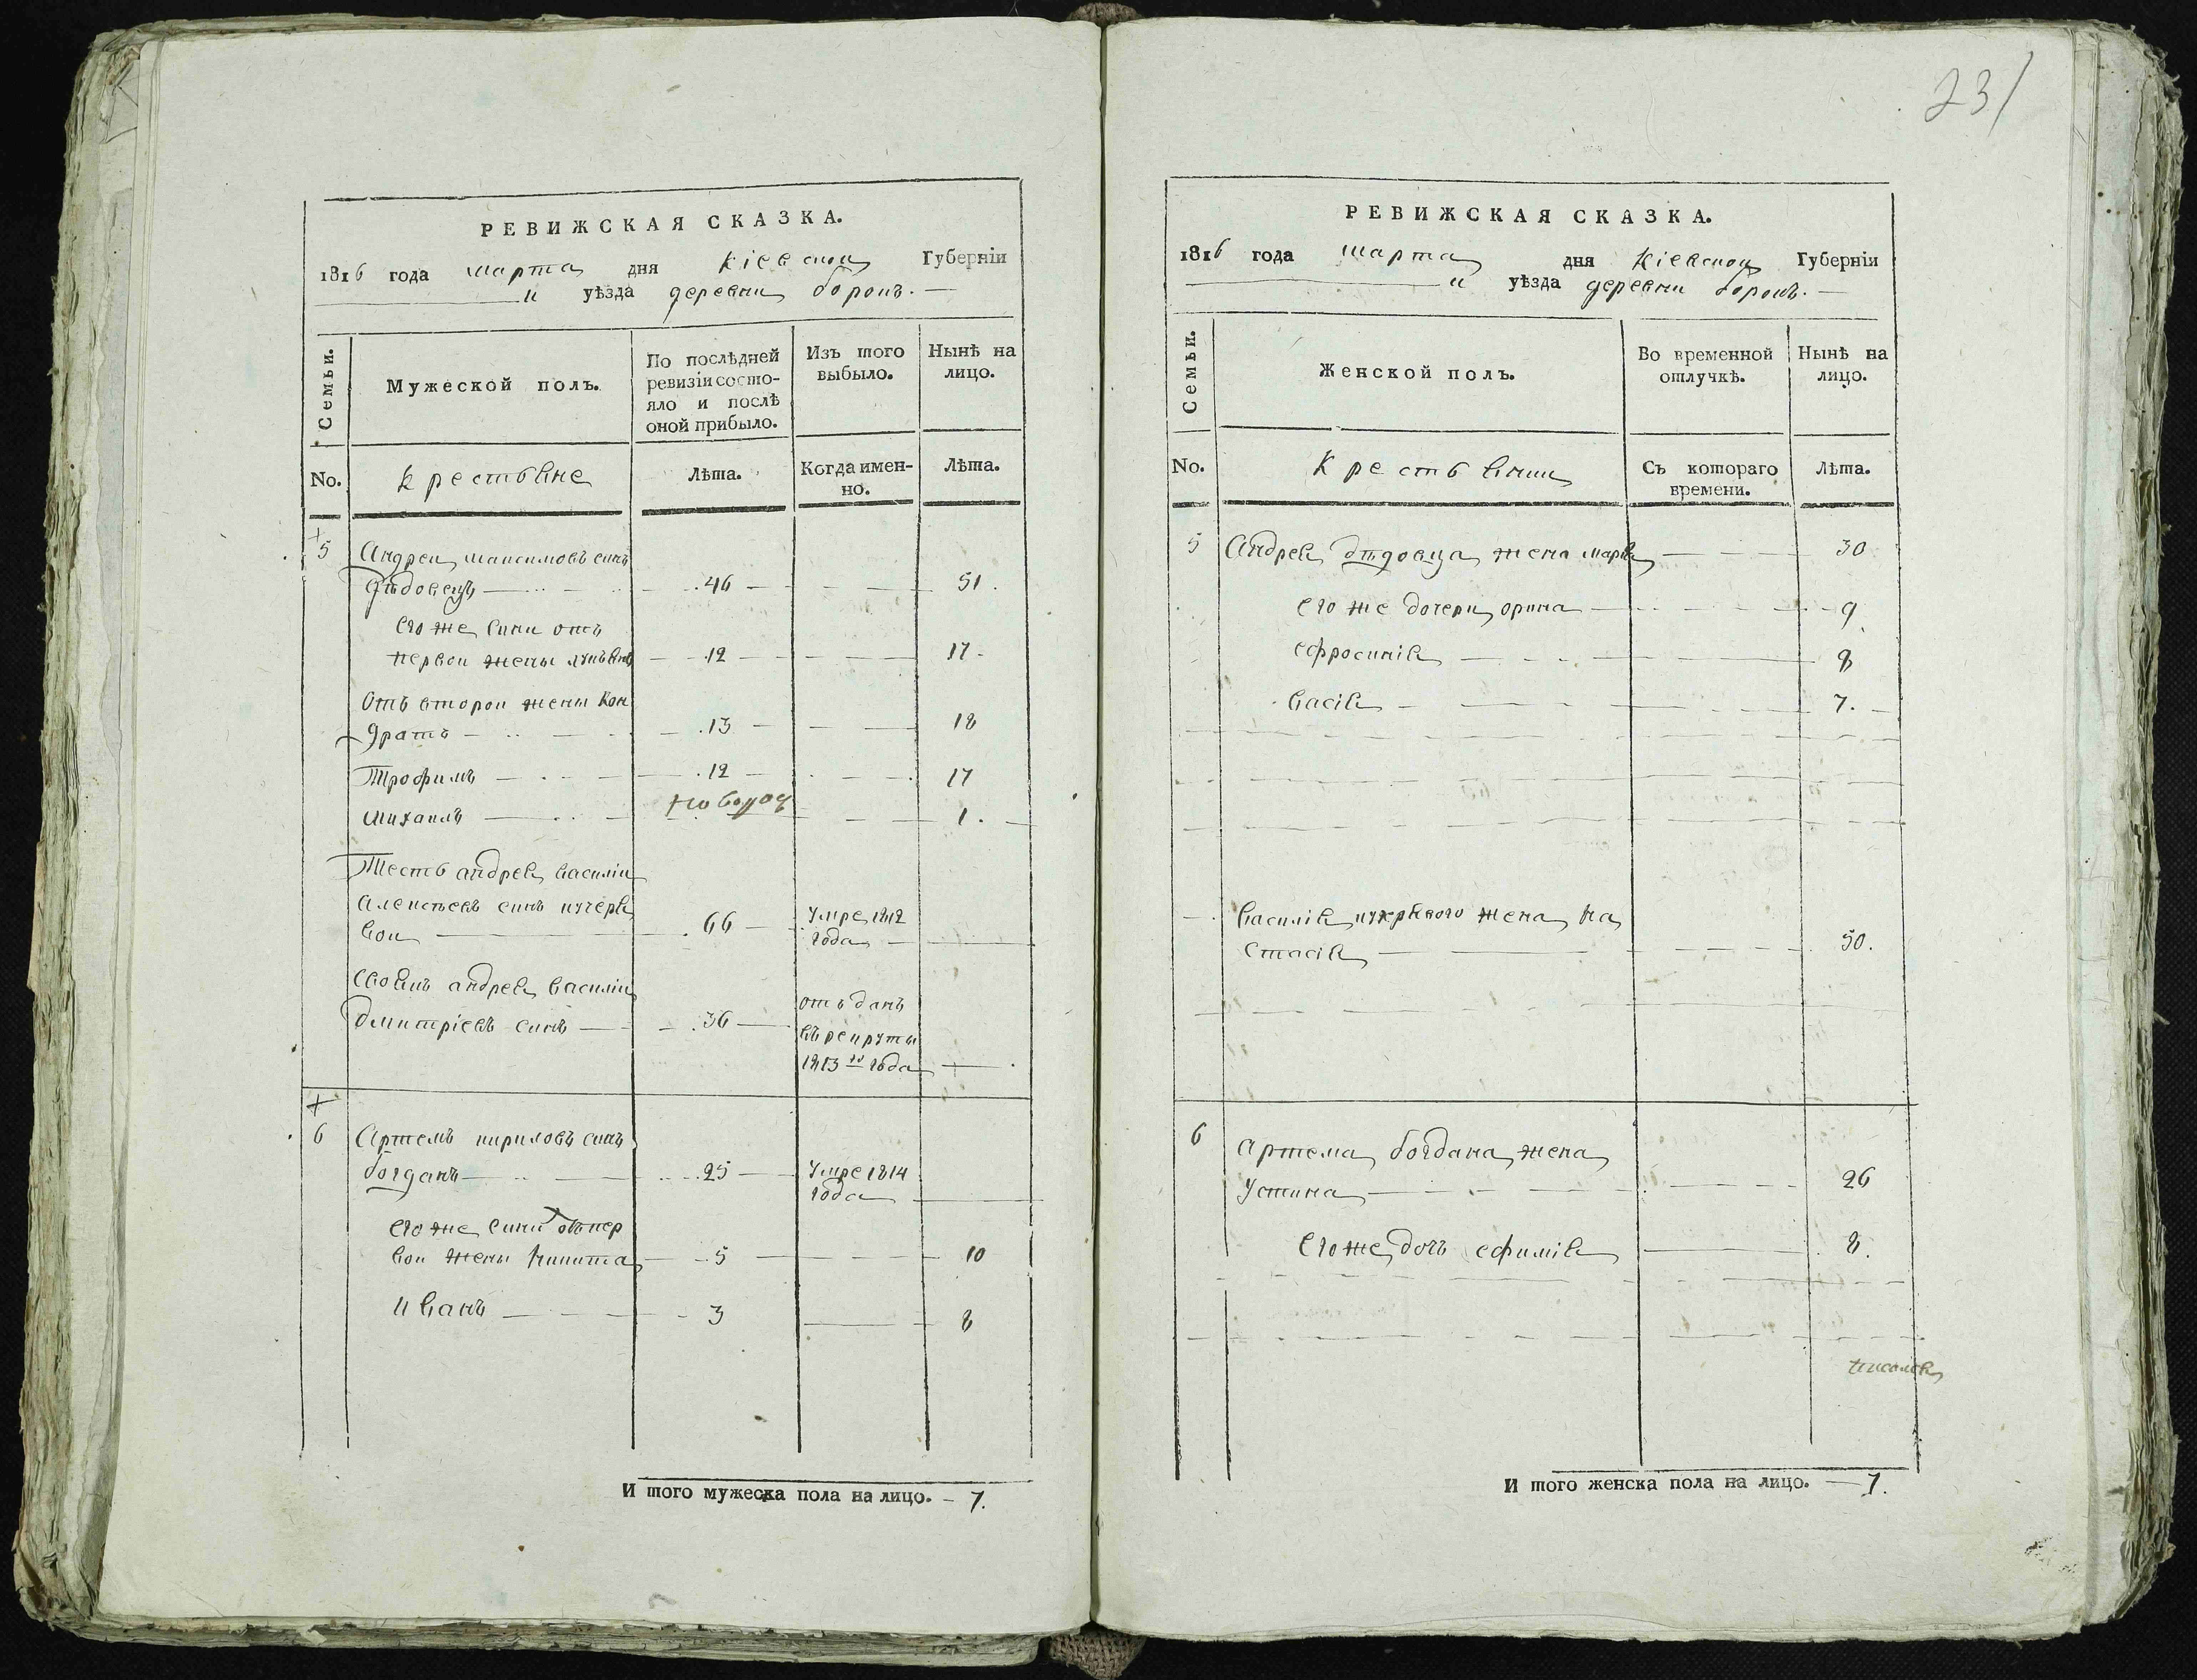 231
РЕВИЖСКАЯ СКАЗКА.
1816 года марта дня Кіевской Губерніи
и уѣзда деревни борокъ. —
Семьи.
Мужеской полъ.
По послѣдней ревизіи состояло и послѣ оной прибыло.
Изъ того выбыло.
Нынѣ на лицо.
No.
Крестьяне
Лѣта.
Когда именно.
Лѣта.
5 Андреи максимовъ синъ
дѣдовецъ 46 51.
его же сини отъ
первои жены лукъянъ 12 17
отъ второи жены кон
дратъ 13 18
Трофимъ 12 17
новород
михаилъ 1.
Тесть андрея василіи
алексѣевъ синъ кучеря
вои 66 умре 1812
года
своякъ андрея василіи
дмитріевъ синъ 36 отъданъ
въ рекруты
1813го года
6 Артемъ кириловъ синъ
богданъ 25 умре 1814
года
его же сини отъ пер
вои жены никита 5 10
иванъ 3 8
И того мужеска пола на лицо. — 7.
РЕВИЖСКАЯ СКАЗКА.
1816 года марта дня Кіевской Губерніи
и уѣзда деревни борокъ. —
Семьи.
Женской полъ.
Во временной отлучкѣ.
Нынѣ на лицо.
No.
Крестьянки
Съ котораго времени.
Лѣта.
5 Андрея дѣдовца жена марія 30
его же дочери орина 9
ефросинія 8
васія 7.
василія кучерявого жена на
стасія 50.
6 артема богдана жена
устина 26
его же дочь ефимія 8.
И того женска пола на лицо. — 7.